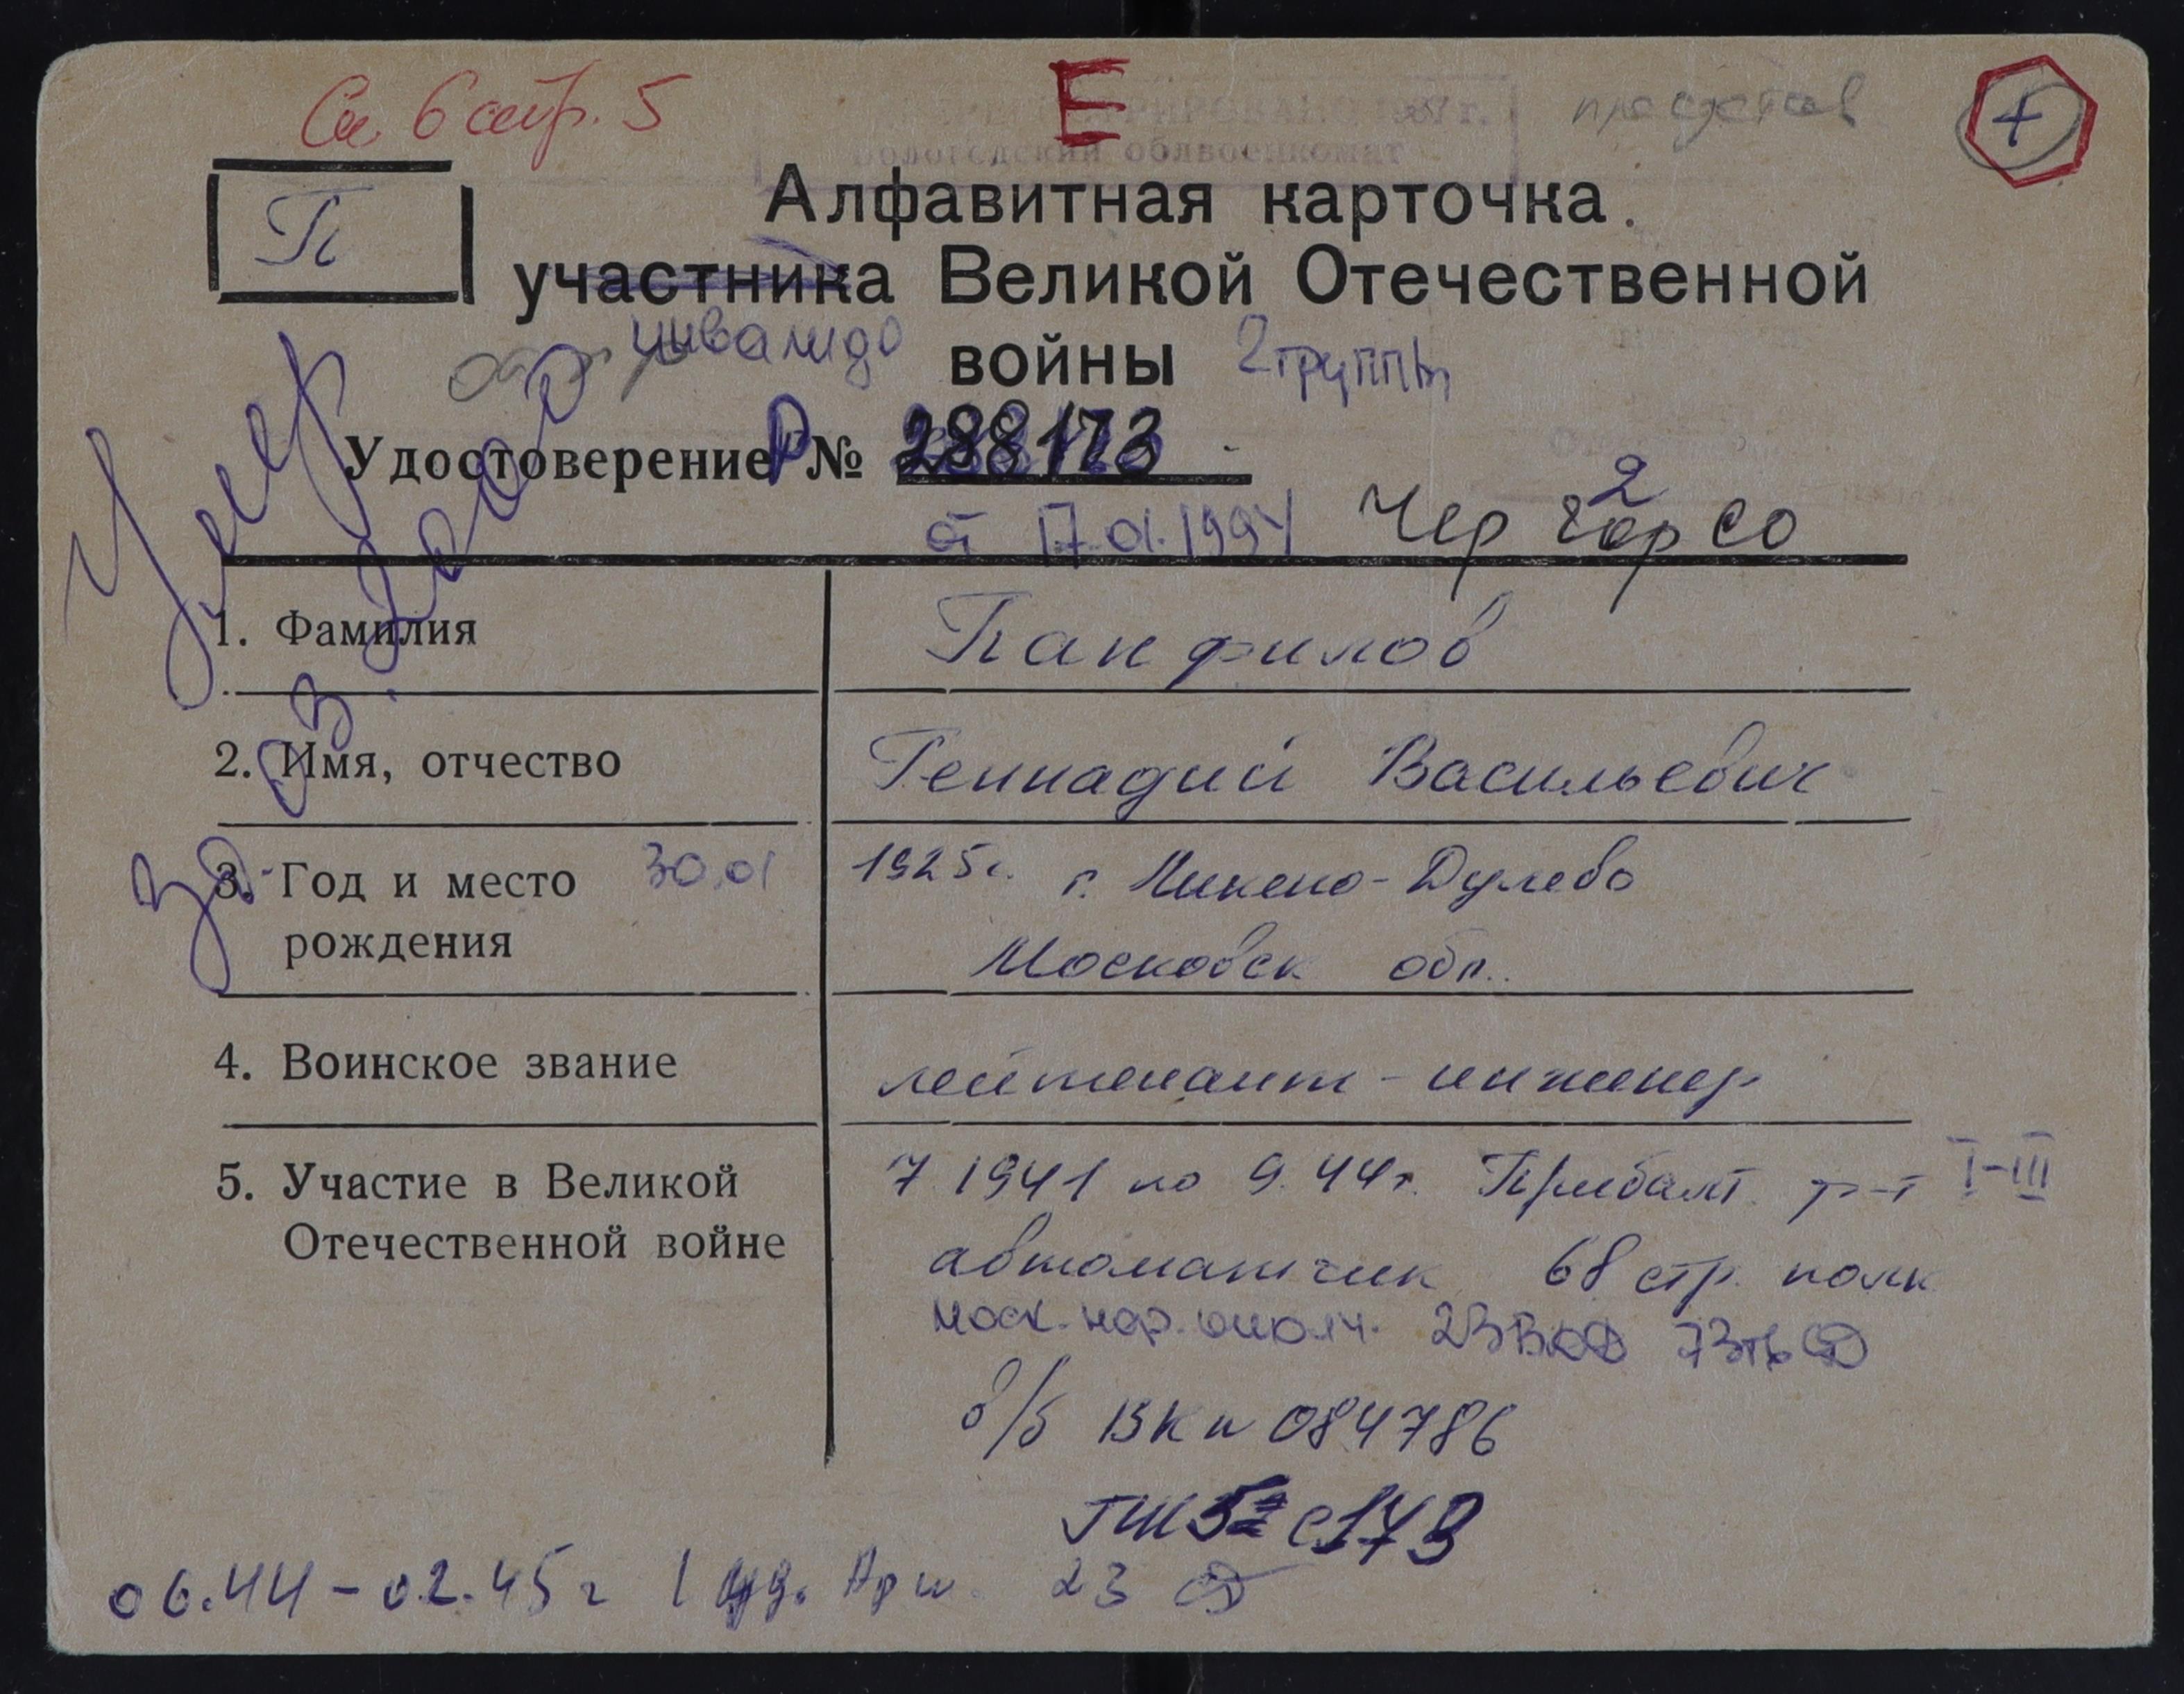 См. 6 стр. 5
Е
Вологодский облвоенкомат
представ
+
П
Алфавитная карточка
участника Великой Отечественной
инвалида войны 2 группы
Удостоверение Р № 288173
от 17.01.1994 Чер гор со
2
Умер
30.03.2000
1. Фамилия Панфилов
2. Имя, отчество Геннадий Васильевич
3. Год и место 30.01 1925 г. г. Ликино-Дулево
рождения Московск обл.
4. Воинское звание лейтенант-инженер
5. Участие в Великой 7 1941 по 9.44 г. Прибалт. ф-т I-III
Отечественной войне автоматчик 68 стр. полк
моск. нар. ополч. 73
в/б ВК № 084786
ГШ 5 с 173
06.44 - 02.45 г 1 уд. Арм. 23 СД